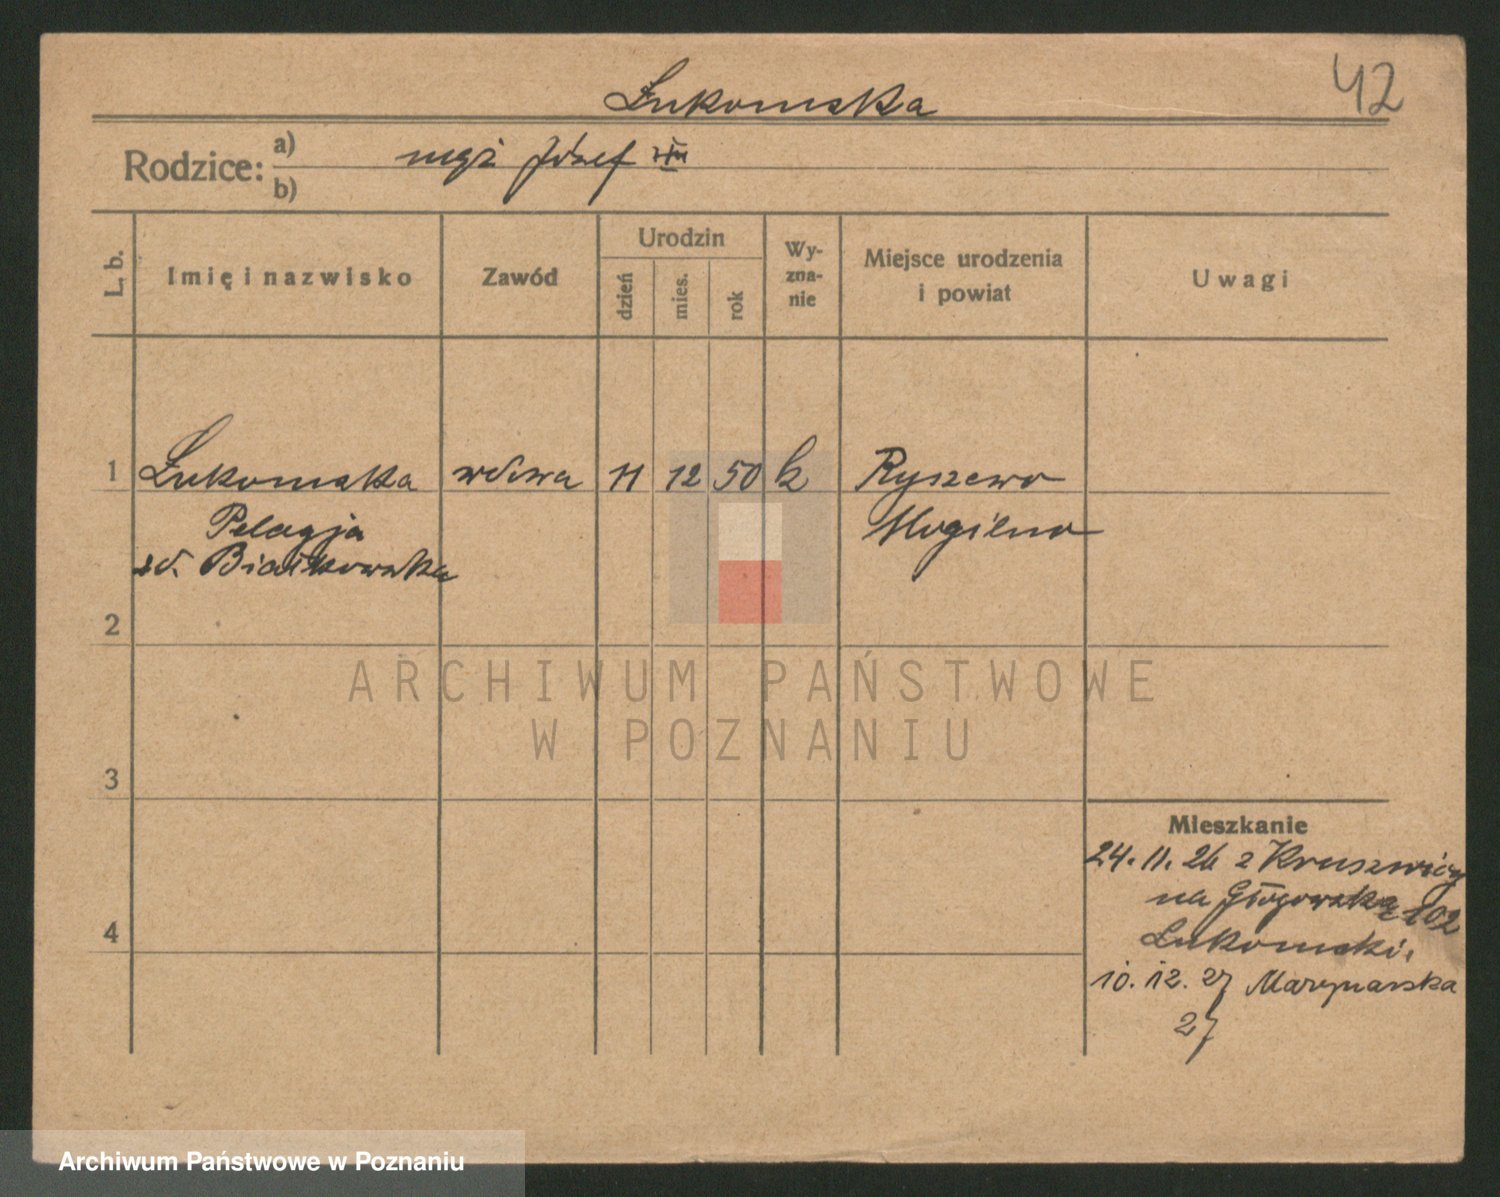 42
Łukomska
Rodzice: a) mąż Józef
b)
L. b.
Imię i nazwisko
Zawód
Urodzin
dzień
mies.
rok
Wy-
zna-
nie
Miejsce urodzenia
i powiat
Uwagi
1 Łukomska wdowa 11 12 50 k Ryszewo
Pelagja Mogilno
zd. Białkowska
2
3
4
Mieszkanie
24.11.26 z Kruszwicy
na Głogowską 102
Łukomski.
10.12.27 Marynarska
27
ARCHIWUM PAŃSTWOWE
W POZNANIU
Archiwum Państwowe w Poznaniu